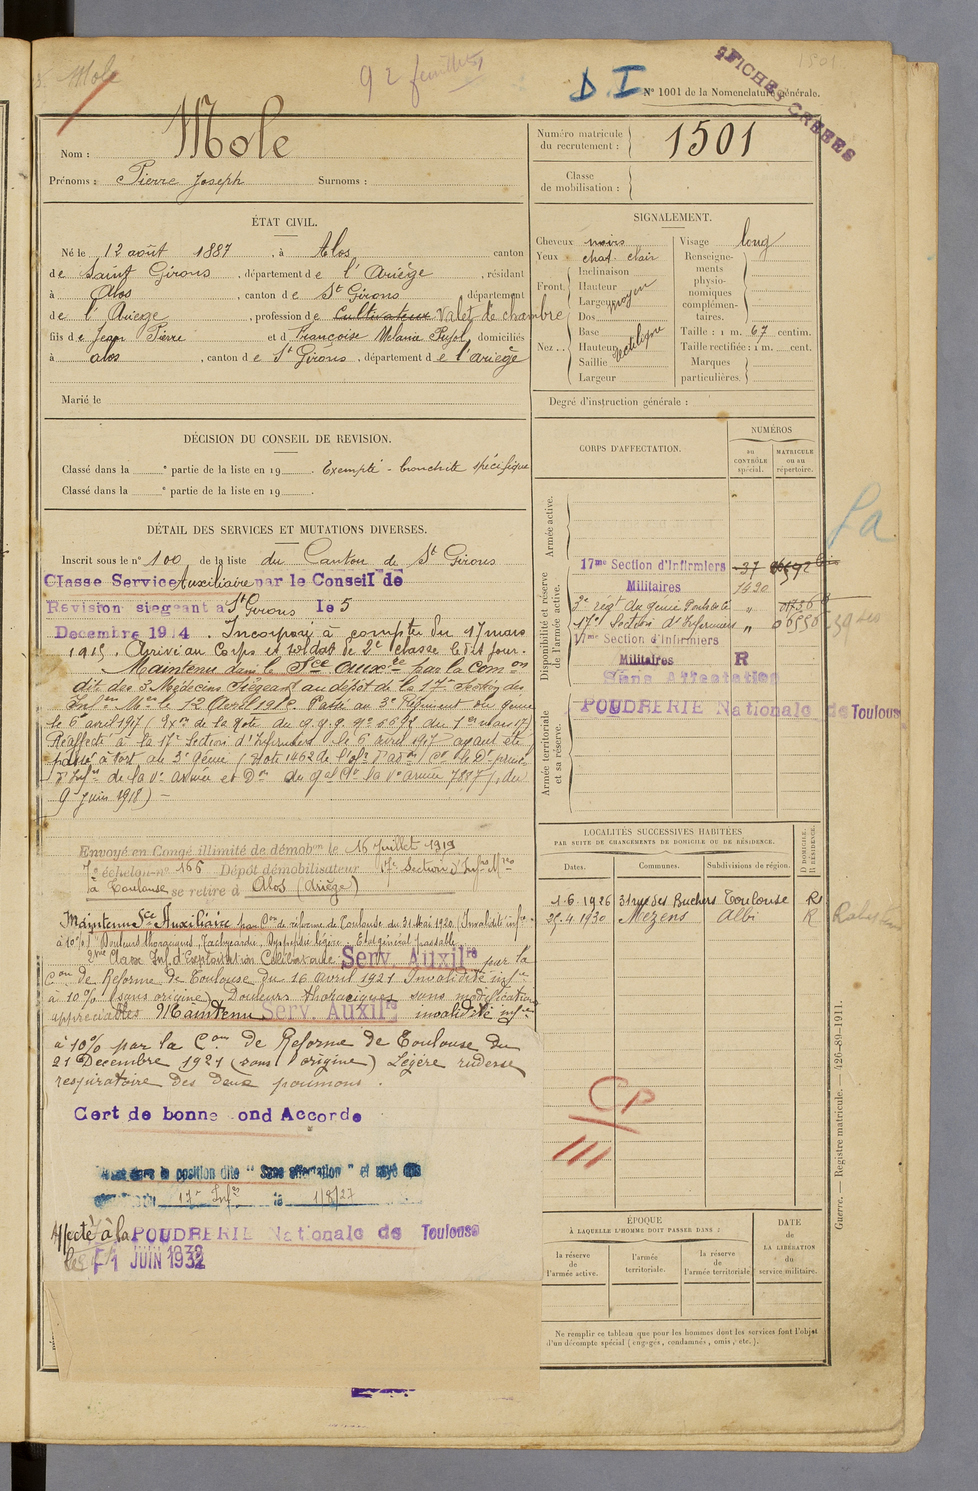 Mole
92 feuillets
D.I
N° 1001 de la Nomenclature générale.
FICHES CREEES
1501
Nom : Mole
Prénoms : Pierre Joseph Surnoms :
Numéro matricule du recrutement : 1501
Classe de mobilisation :
ÉTAT CIVIL.
Né le 12 août 1887, à Alos canton
de Saint Girons, département de l'Ariège, résidant
à Alos, canton de St Girons, département
de l'Ariège, profession de Cultivateur Valet de chambre
fils de Jean Pierre et d Françoise Melanie Pujol domiciliés
à alos, canton de St Girons, département de l'ariège
Marié le
SIGNALEMENT.
Cheveux noirs
Yeux chat. clair
Front. Inclinaison
Hauteur
Largeur moyen
Nez.. Dos
Base
Hauteur rectiligne
Saillie
Largeur
Visage long
Renseignements physionomiques complémentaires.
Taille : 1 m. 67 centim.
Taille rectifiée : 1 m. cent.
Marques particulières.
Degré d'instruction générale :
DÉCISION DU CONSEIL DE REVISION.
Classé dans la e partie de la liste en 19 . Exempté - bronchite spécifique
Classé dans la e partie de la liste en 19 .
DÉTAIL DES SERVICES ET MUTATIONS DIVERSES.
Inscrit sous le n° 100 de la liste du Canton de St Girons
Classe Service Auxiliaire par le Conseil de
Revision siegeant a St Girons le 5
Decembre 1914. Incorporé à compter du 17 mars
1915. Arrivé au Corps et soldat de 2e classe le dit jour.
Maintenu dans le Sce auxre par la Comon
dite des 3 Médecins siégeant au dépôt de la 17e Section des
Passé au 3e Régiment du génie
le 6 avril 1917
Réaffecté à la 17e Section d'Infirmiers le 6 avril 1917 ayant été
passé à tort au 3e Génie
de la Ve armée
9 juin 1918) -
Envoyé en Congé illimité de démobon le 16 Juillet 1919
7e échelon n° 166 Dépôt démobilisateur 17e Section d'Infres Mres
à Toulouse se retire à Alos (Ariège)
Maintenu Sce Auxiliaire par Con de réforme de Toulouse du 31 Mai 1920 (Invalidité infre
à 10%) Douleurs thoraciques, Tachycardie, Dyspepsie légère. Etat général passable.
Serv. Auxilre par la
Con de Réforme de Toulouse du 16 avril 1921 Invalidité infre
à 10% (sans origine) Douleurs thoraciques sans modifications
appréciables Maintenu Serv. Auxilre invalidité infre
à 10% par la Con de Réforme de Toulouse du
21 Decembre 1921 (sans origine) Légère rudesse
respiratoire des deux poumons.
Cert de bonne cond Accorde
dans la position dite "Sans affectation" et rayé des
17e Infres le 1/8/27
Affecté à la POUDRERIE Nationale de Toulouse
le 1 JUIN 1932
CORPS D'AFFECTATION.
NUMÉROS
au CONTRÔLE spécial.
MATRICULE ou au répertoire.
Armée active.
Disponibilité et réserve de l'armée active.
Armée territoriale et sa réserve.
17me Section d'Infirmiers
Militaires 1420
3e régt du génie
17e Section d'Infirmiers
17me Section d'Infirmiers
Militaires R
Sans Affectation
POUDRERIE Nationale de Toulouse
LOCALITÉS SUCCESSIVES HABITÉES
PAR SUITE DE CHANGEMENTS DE DOMICILE OU DE RÉSIDENCE.
Dates. Communes. Subdivisions de région. D DOMICILE. R RÉSIDENCE.
1.6.1926 31 rue des Buchers Toulouse R
25.4.1930 Mezens Albi R
CP
III
ÉPOQUE
À LAQUELLE L'HOMME DOIT PASSER DANS :
la réserve de l'armée active.
l'armée territoriale.
la réserve de l'armée territoriale.
DATE de LA LIBÉRATION du service militaire.
Ne remplir ce tableau que pour les hommes dont les services font l'objet
d'un décompte spécial (engagés, condamnés, omis, etc.).
Guerre. — Registre matricule. — 426-89-1911.